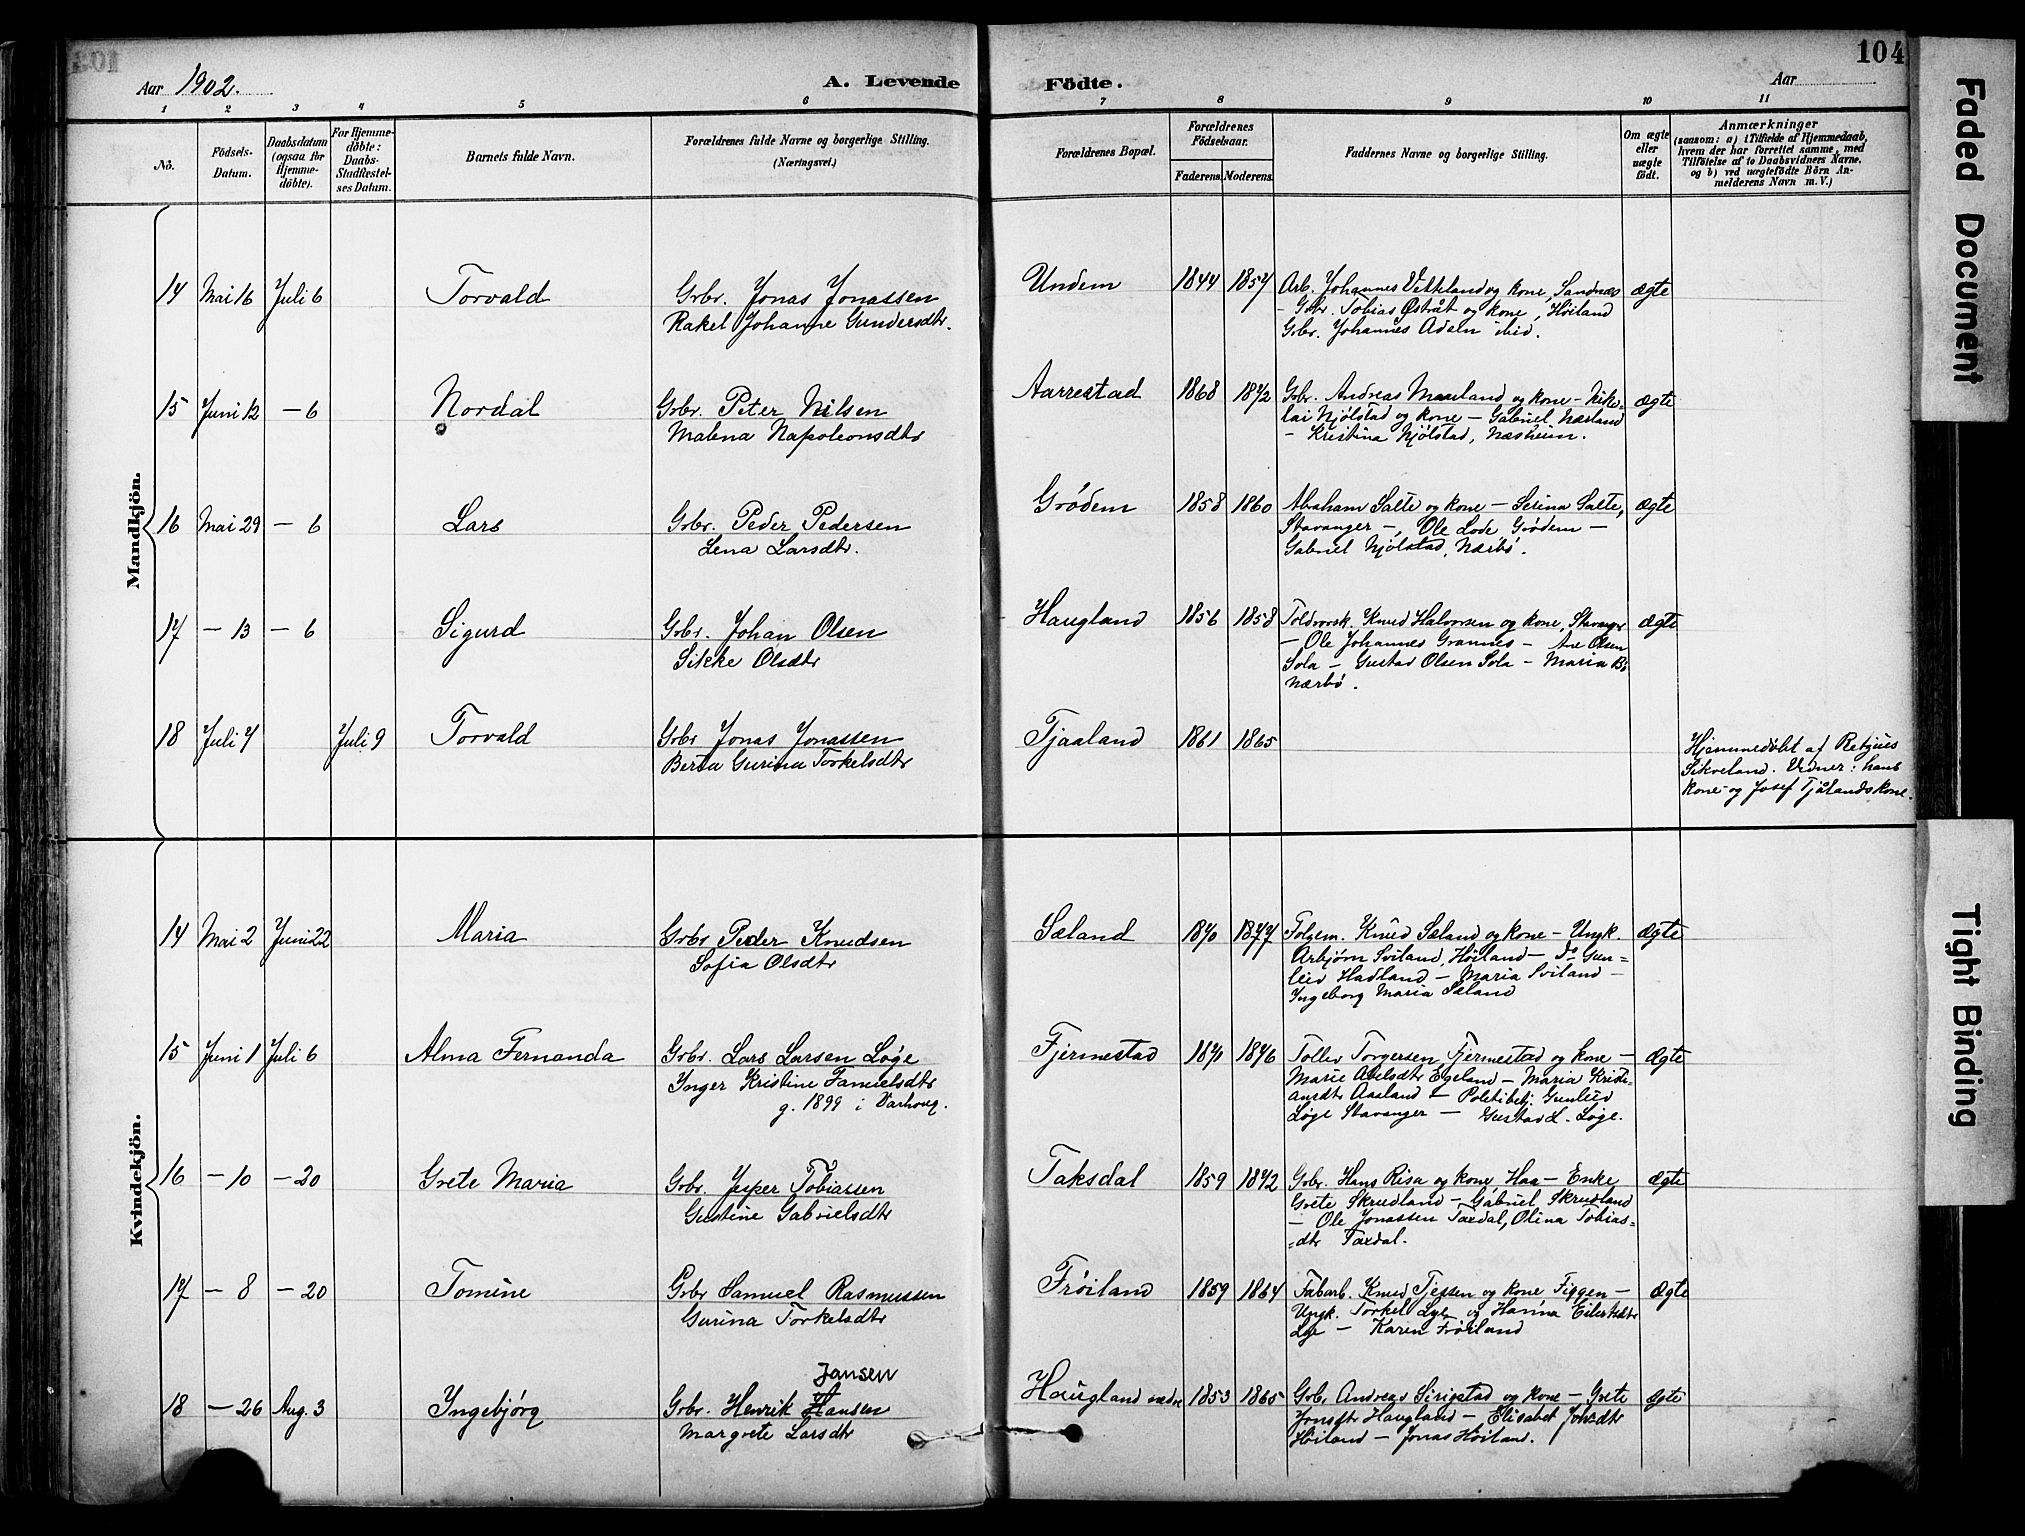 104
Aar 1902.
A. Levende
Födte.
Aar
1 2 3 4 5 6 7 8 9 10 11
Nö.
Födsels-
Datum.
Daabsdatum
(ogsaa for
Hjemme-
döbte).
For Hjemme-
döbte:
Daabs-
Stadfæstel-
ses Datum.
Barnets fulde Navn.
Forældrenes fulde Navne og borgerlige Stilling.
(Næringsvei.)
Forældrenes Bopæl.
Forældrenes
Födselsaar.
Faderens. Moderens.
Faddernes Navne og borgerlige Stilling.
Om ægte
eller
uægte
födt.
Anmærkninger
(saasom: a) i Tilfælde af Hjemmedaab,
hvem der har forrettet samme, med
Tilföielse af to Daabsvidners Navne.
og b) ved uægtefödte Börn An-
melderens Navn m. V.)
Mandkjön.
14 Mai 16 Juli 6 Torvald Grbr. Jonas Jonassen
Rakel Johanne Gundersdtr.
Undem 1844 1857 Arb. Johannes Vetkland og kone, Sandnæs ægte
– Grbr. Tobias Østråt og kone, Höiland
Grbr. Johannes Adseln ibid.
15 Juni 12 – 6 Nordal Grbr. Peter Nilsen
Malena Napoleonsdtr
Aarrestad 1868 1872 Grbr. Andreas Maurland og kone – Niko- ægte
lai Njölstad og kone – Gabriel Nærland
– Kristina Njölstad, Næsheim.
16 Mai 29 – 6 Lars Grbr. Peder Pedersen
Lena Larsdtr.
Grödem 1858 1860 Abraham Salte og kone – Serina Salte, ægte
Stavanger –, Ole Lode Grödem –
Gabriel Njölstad, Nærbö.
17 – 13 – 6 Sigurd Grbr. Johan Olsen
Sikke Olsdtr
Haugland 1856 1858 Toldvorsk. Knud Halvorsen og kone, Stavanger ægte
– Ole Johannes Grannes – Ane Olsen
Sola – Gustav Olsen Sola – Maria Bö
Nærbö.
18 Juli 7 Juli 9 Torvald Grbr Jonas Jonassen
Berta Gurina Torkelsdtr
Tjaaland 1861 1865
Hjemmedöbt af Retjius
Sikveland. Vidner: hans
kone og Josef Tjålands kone.
Kvindekjön.
14 Mai 2 Juni 22 Maria Grbr Peder Knudsen
Sofia Olsdtr
Sæland 1870 1877 Folgem. Knud Sæland og kone – Ungk. ægte
Arbjörn Sviland, Höiland – Do Gun-
leiv Hadland – Maria Sviland –
Ingeborg Maria Sæland
15 Juni 1 Juli 6 Alma Fernanda Grbr. Lars Larsen Löge
Inger Kristine Famuelsdtr
g. 1899 i Varhoug.
Fjermestad 1870 1876 Tollev Torgersen Fjermestad og kone – ægte
Marie Axelsdtr Egeland – Maria Kristi-
ansdtr Aasland – Politibetj. Gunleiv
Löge Stavanger – Gustav L. Löge.
16 – 10 – 20 Grete Maria Grbr. Jesper Tobiassen
Gustine Gabrielsdtr
Taksdal 1859 1872 Grbr. Hans Risa og kone, Haa – Enke ægte
Grete Skrudland – Gabriel Skrudland
– Ole Jonassen Taxdal, Olina Tobias-
dtr Taxdal.
17 – 8 – 20 Tomine Grbr Samuel Rasmussen
Gurina Torkelsdtr
Fröiland 1859 1864 Fabarb. Knud Tjessen og kone Figgen – ægte
Ungk. Torkel Lye og Hanna Eilertsdtr
Lye – Karen Fröiland
18 – 26 Aug. 3 Ingebjörg Grbr. Henrik Hansen Jansen
Margrete Larsdtr
Haugland nedre 1853 1865 Grbr. Andreas Sirigstad og kone – Grete ægte
Jonsdtr Haugland – Elisabet Johsdtr
Höiland – Jonas Höiland.
Faded Document
Tight Binding